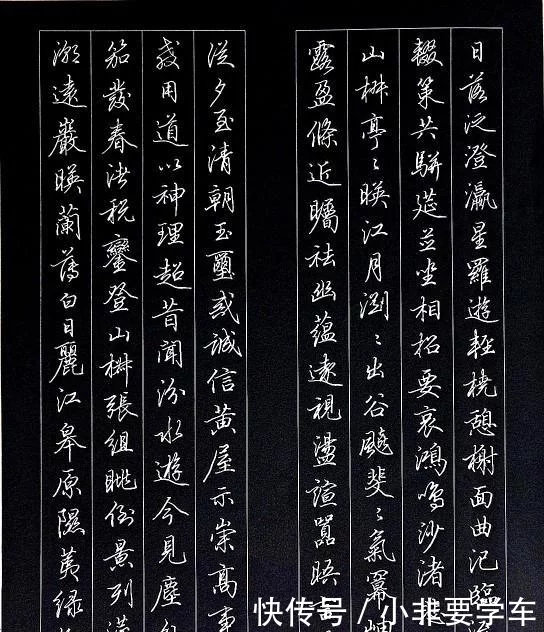 日落泛澄瀛星羅遊輕橈憩榭面曲汜臨
輟策共駢筵並坐相招要哀鴻鳴沙渚
山椒亭〻暎江月瀏〻出谷飈斐〻氣冪岫
露盈條近矚祛幽蘊遠視盪諠囂晤言
從夕至清朝玉璽戒誠信黃屋示崇高事
教用道以神理超昔聞汾水遊今見塵外
笳發春渚稅鑾登山椒張組眺倒景列筵
潮遠巖暎蘭薄白日麗江皋原隰荑綠
快传号/小非要学车